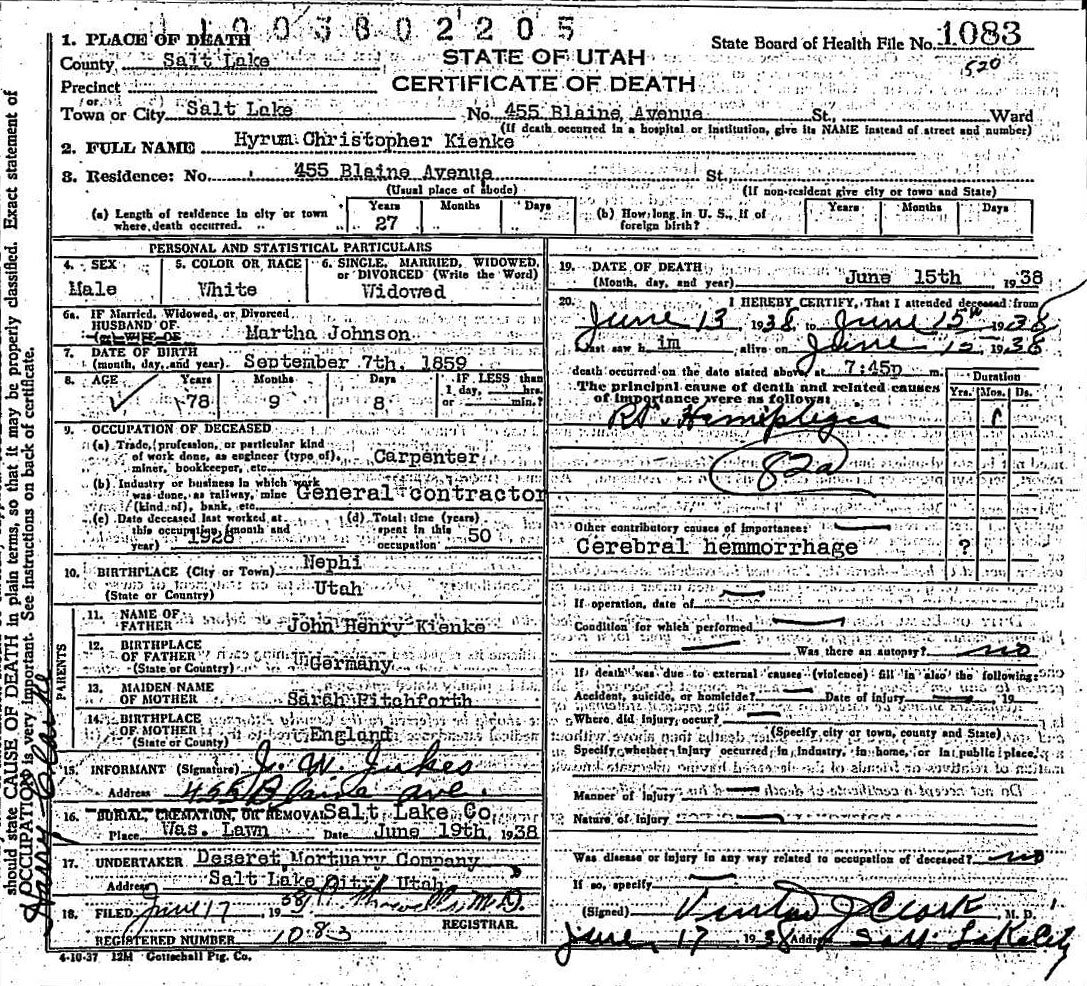 1003802205
1. PLACE OF DEATH
State Board of Health File No. 1083
County Salt Lake
STATE OF UTAH
520
Precinct
CERTIFICATE OF DEATH
or
Town or City Salt Lake No. 455 Blaine Avenue St., Ward
(If death occurred in a hospital or institution, give its NAME instead of street and number)
2. FULL NAME Hyrum Christopher Kienke
3. Residence: No. 455 Blaine Avenue St.
(Usual place of abode) (If non-resident give city or town and State)
(a) Length of residence in city or town where death occurred. Years 27 Months Days
(b) How long in U. S., if of foreign birth? Years Months Days
PERSONAL AND STATISTICAL PARTICULARS
4. SEX Male
5. COLOR OR RACE White
6. SINGLE, MARRIED, WIDOWED, or DIVORCED (Write the Word) Widowed
6a. IF Married, Widowed, or Divorced
HUSBAND OF
(or) WIFE OF Martha Johnson
7. DATE OF BIRTH
(month, day, and year) September 7th, 1859
8. AGE Years 78 Months 9 Days 8 IF LESS than 1 day, hrs. or min.?
9. OCCUPATION OF DECEASED
(a) Trade, profession, or particular kind
of work done, as engineer (type of), Carpenter
miner, bookkeeper, etc.
(b) Industry or business in which work
was done, as railway, mine General contractor
(kind of), bank, etc.
(c) Date deceased last worked at this occupation (month and year) 1928
(d) Total time (years) spent in this occupation 50
10. BIRTHPLACE (City or Town) Nephi
(State or Country) Utah
PARENTS
11. NAME OF FATHER John Henry Kienke
12. BIRTHPLACE OF FATHER (State or Country) Germany
13. MAIDEN NAME OF MOTHER Sarah Pitchforth
14. BIRTHPLACE OF MOTHER (State or Country) England
15. INFORMANT (Signature) J. W. Jukes
Address 455 Blaine Ave.
16. BURIAL, CREMATION, OR REMOVAL Salt Lake Co
Place Was. Lawn Date June 19th, 1938
17. UNDERTAKER Deseret Mortuary Company
Address Salt Lake City Utah
18. FILED June 17 1938 M.D.
REGISTRAR.
REGISTERED NUMBER 1083
4-10-37 12M Gottschall Ptg. Co.
19. DATE OF DEATH
(Month, day, and year) June 15th 1938
20. I HEREBY CERTIFY, That I attended deceased from
June 13 1938 to June 15th 1938
I last saw him alive on June 15 1938
death occurred on the date stated above, at 7:45p m.
The principal cause of death and related causes
of importance were as follows:
Duration
Yrs. Mos. Ds.
Rt. Hemiplegia
82a
Other contributory causes of importance:
Cerebral hemmorrhage ?
If operation, date of
Condition for which performed
Was there an autopsy? no
If death was due to external causes (violence) fill in also the following:
Accident, suicide, or homicide? Date of injury 19
Where did injury occur?
(Specify city or town, county and State)
Specify whether injury occurred in industry, in home, or in public place.
Manner of Injury
Nature of Injury
Was disease or injury in any way related to occupation of deceased? no
If so, specify
(Signed) J Clark M. D.
June 17 1938 Address Salt Lake City
should state CAUSE OF DEATH in plain terms, so that it may be properly classified. Exact statement of
OCCUPATION is very important. See instructions on back of certificate.